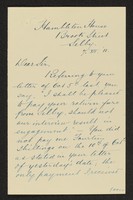 Hamilton House
Brook Street
Selby
Dear Sir
Refering to your
letter of Oct 5th last you
say, I shall be pleased
to pay your return fare
from Selby, should not
our interview result in
engagement. You did
not pay me Fourteen
Shillings on the 10th of Oct
as stated in your letter
of yesterday's date, the
only payment I received